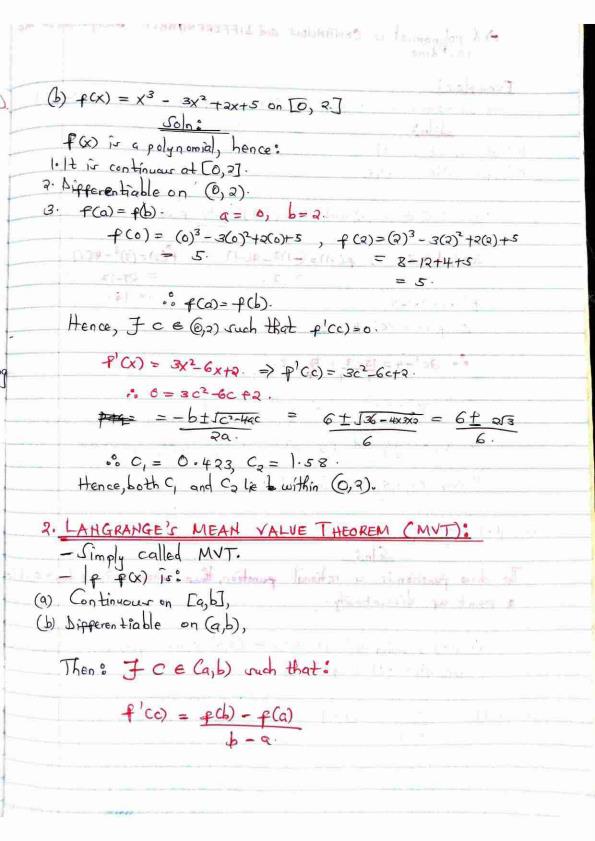 (b) f(x) = x³ - 3x² + 2x + 5 on [0, 2.]
Soln:
f(x) is a polynomial, hence:
1. It is continuous at [0,2].
2. Differentiable on (0,2).
3. f(a) = f(b). a = 0, b = 2.
f(0) = (0)³ - 3(0)² + 2(0) + 5 , f(2) = (2)³ - 3(2)² + 2(2) + 5
= 5. = 8 - 12 + 4 + 5
= 5.
∴ f(a) = f(b).
Hence, ∃ c ∈ (0,2) such that f'(c) = 0.
f'(x) = 3x² - 6x + 2 ⇒ f'(c) = 3c² - 6c + 2.
∴ 0 = 3c² - 6c + 2.
= -b ± √(c² - 4ac) / 2a. = 6 ± √(36 - 4x3x2) / 6 = 6 ± 2√3 / 6.
∴ C₁ = 0.423, C₂ = 1.58.
Hence, both C₁ and C₂ lie within (0,2).
2. LAHGRANGE'S MEAN VALUE THEOREM (MVT):
- Simply called MVT.
- If f(x) is:
(a) Continuous on [a,b],
(b) Differentiable on (a,b),
Then: ∃ c ∈ (a,b) such that:
f'(c) = f(b) - f(a)
b - a.